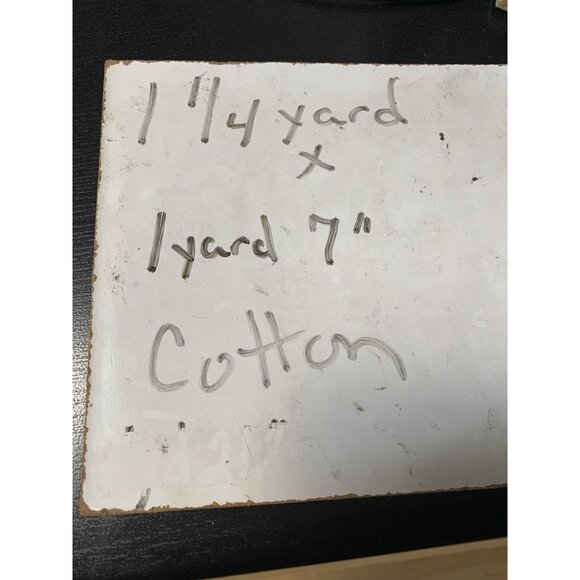 1 1/4 yard
x
1 yard 7"
Cotton